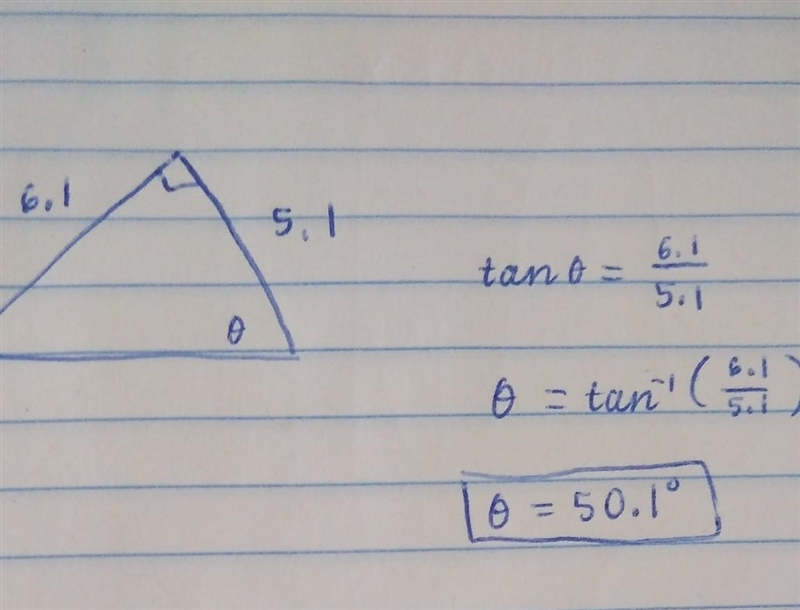 6.1
5.1
θ
tan θ = 6.1/5.1
θ = tan⁻¹ (6.1/5.1)
θ = 50.1°